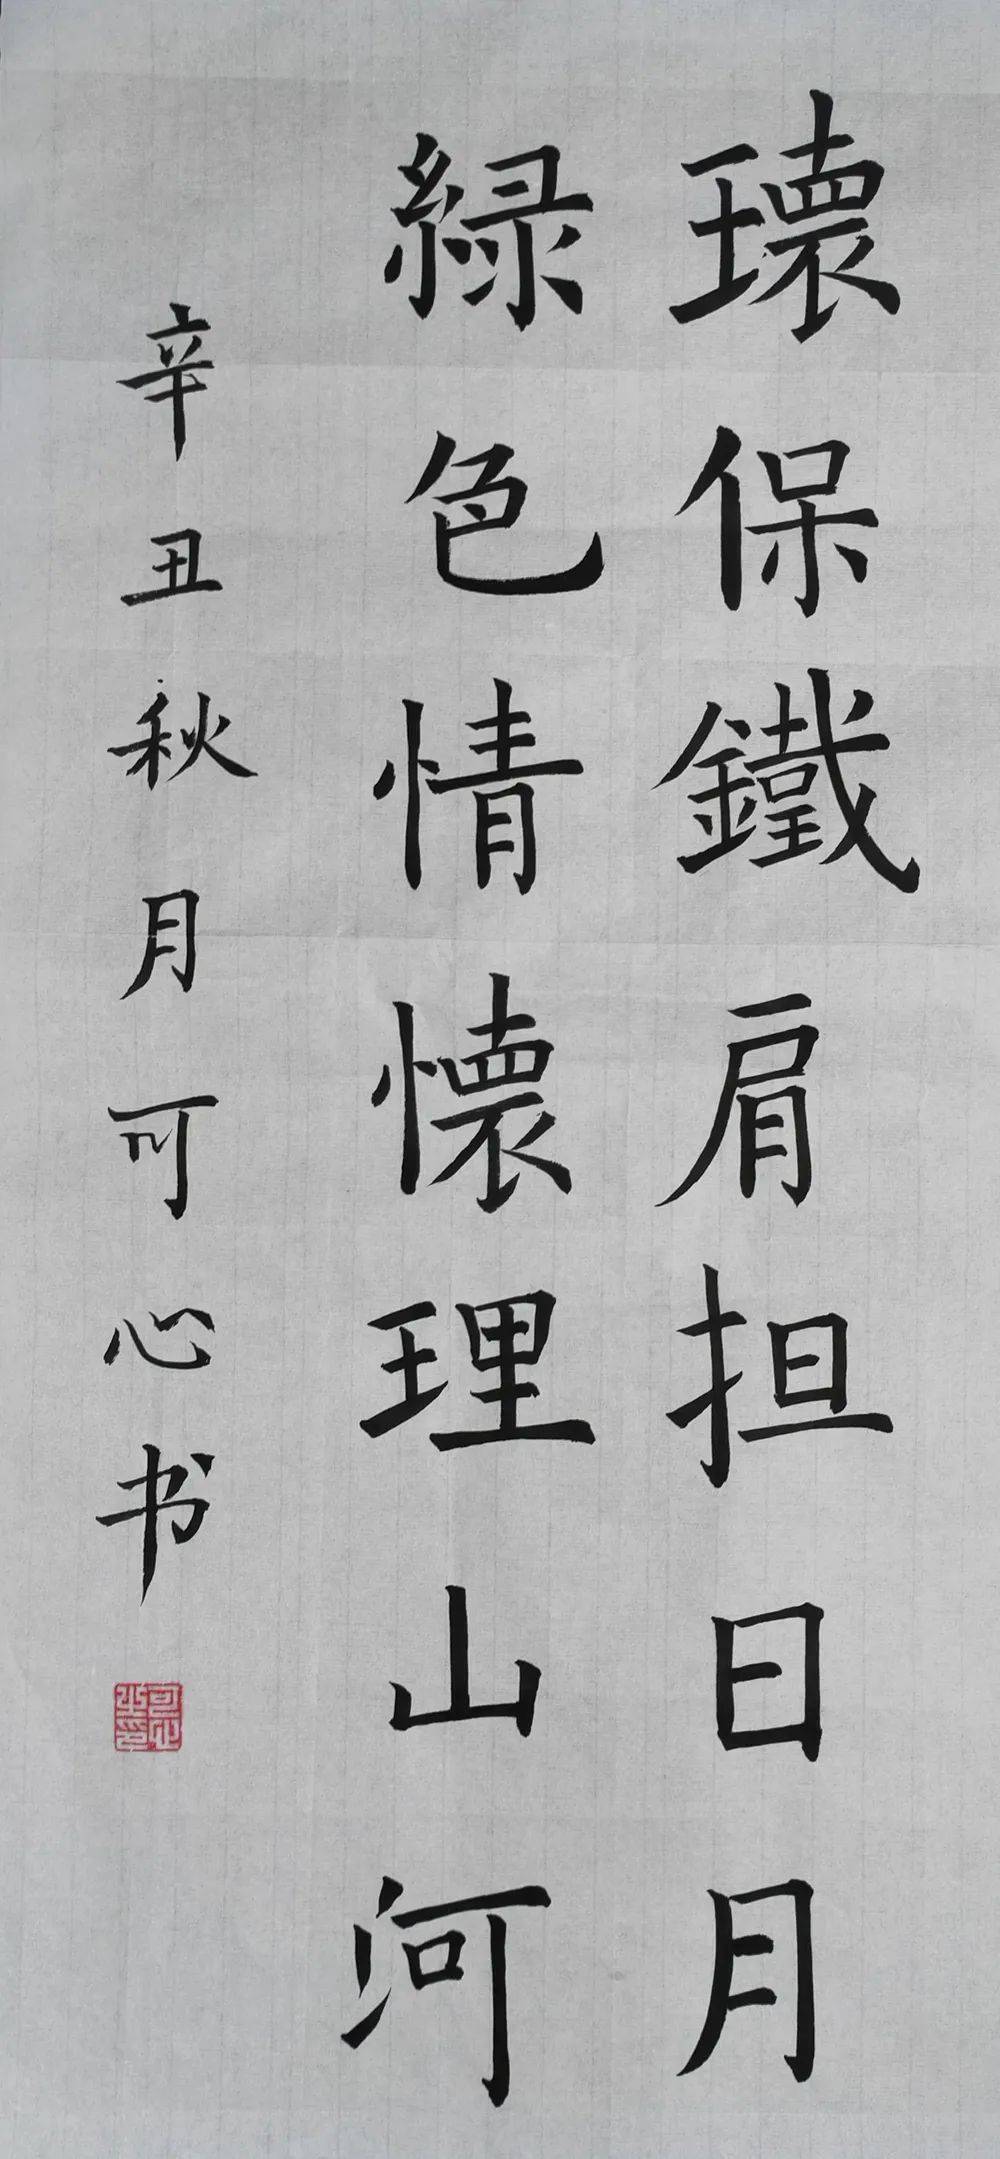 環保鐵肩担日月
緑色情懷理山河
辛丑秋月可心书
可心之印